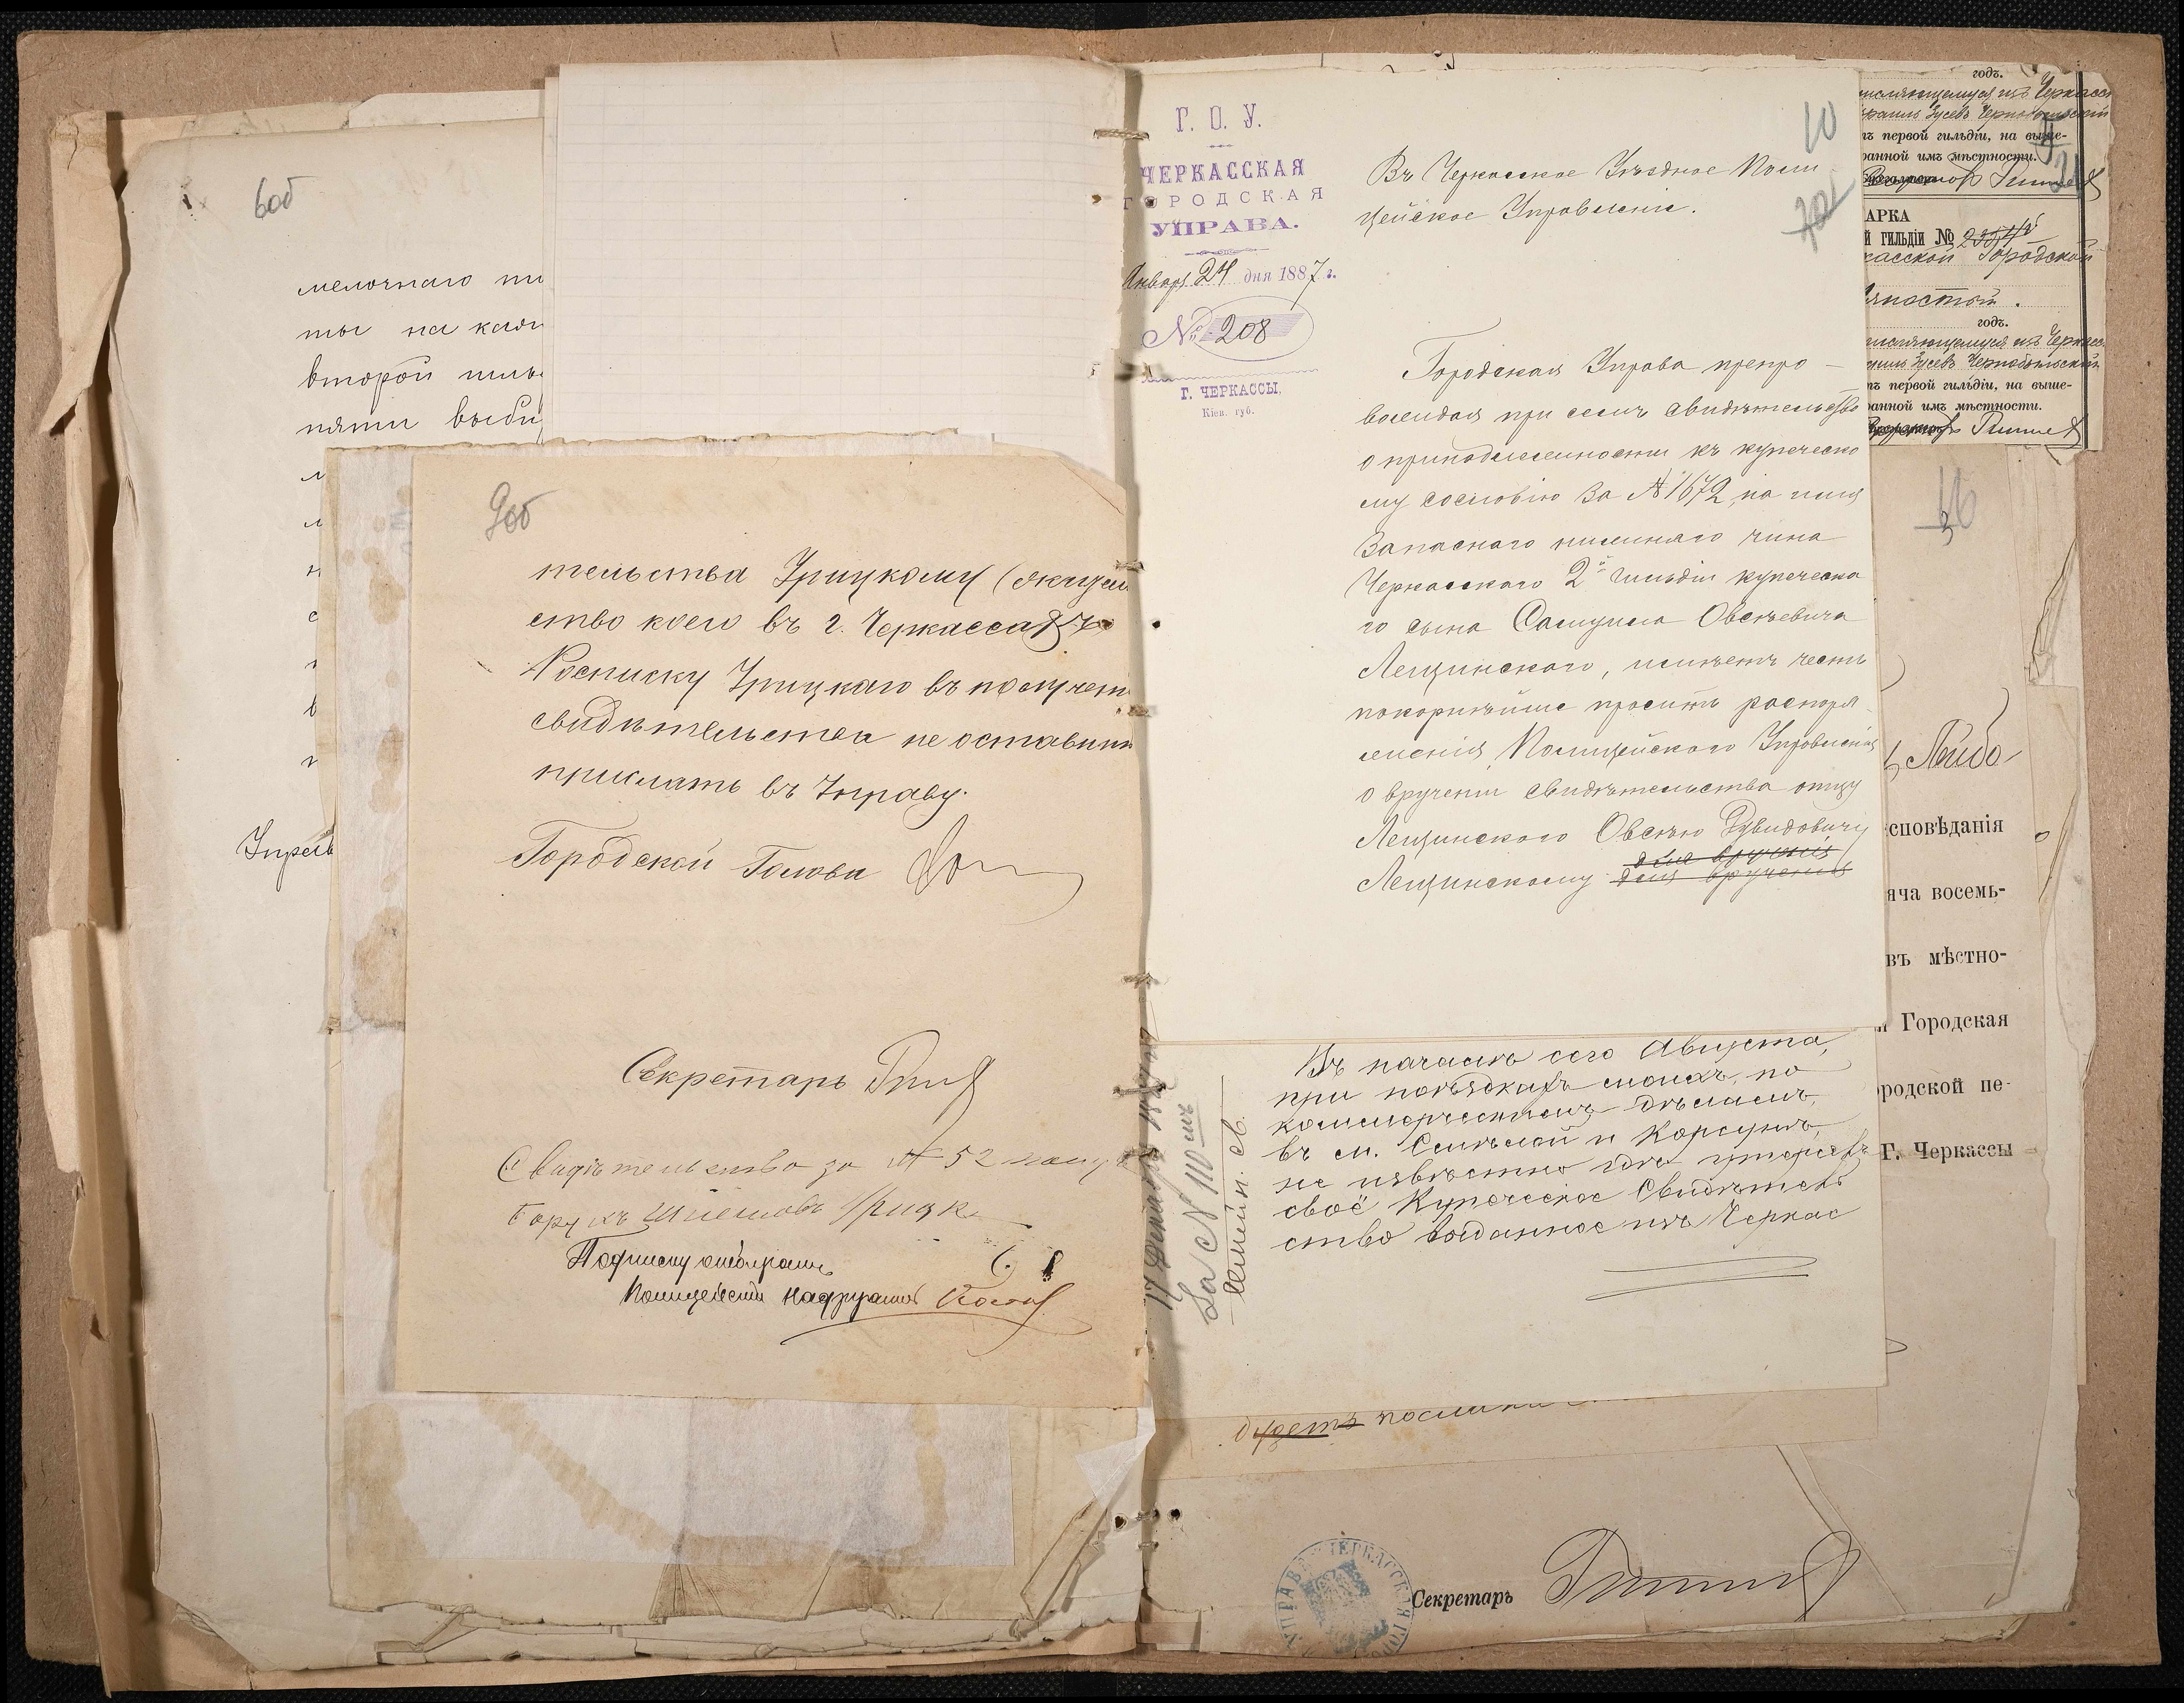 6об
мелочнаго
ты на
второй
пяти
9об
тельства Урицкому (жител
ство коего въ г. Черкассахъ
Росписку Урицкаго въ получен
свидѣтельства не оставить
прислать въ Управу.
Городской Голова
Секретарь
Свидѣтельство за № 52
Подписку отбиралъ
Полицейскій Надзиратель
Г. О. У.
ЧЕРКАССКАЯ
ГОРОДСКАЯ
УПРАВА.
Января 24 дня 1887 г.
№ 208
Г. ЧЕРКАССЫ,
Кіев. губ.
10
Въ Черкасское Уѣздное Поли
цейское Управленіе.
Городская Управа препро-
вождая при семъ свидѣтельство
о принадлежности къ купеческо
му сословію за № 1672, на имя
Запаснаго нижняго чина
Черкасскаго 2й гильдіи купеческа
го сына Самуила Овсѣевича
Лещинского, имѣетъ честь
покорнѣйше просить распоря-
женія Полицейского Управленія
о врученіи свидѣтельства отцу
Лещинского Овсѣю Дувидовичу
для врученія
Лещинскому для врученія
Въ началѣ сего Августа,
при поѣздкахъ моихъ по
коммерческимъ дѣламъ,
въ м. Смѣлой и Корсунь
не извѣстно гдѣ утерялъ
своё Купеческое Свидѣтель
ство выданное изъ Черкас
17 Декабря
За № 110
будетъ
УПРАВА ЧЕРКАССКАЯ ГО
Секретарь
годъ.
ъ первой гильдіи, на выше-
ранной имъ мѣстности.
АРКА
Й ГИЛЬДІИ №
касской Городской
годъ.
ъ первой гильдіи, на выше-
ранной имъ мѣстности.
Лейбо
сповѣданія
яча восемь-
въ мѣстно-
Городская
ородской пе-
Г. Черкассы